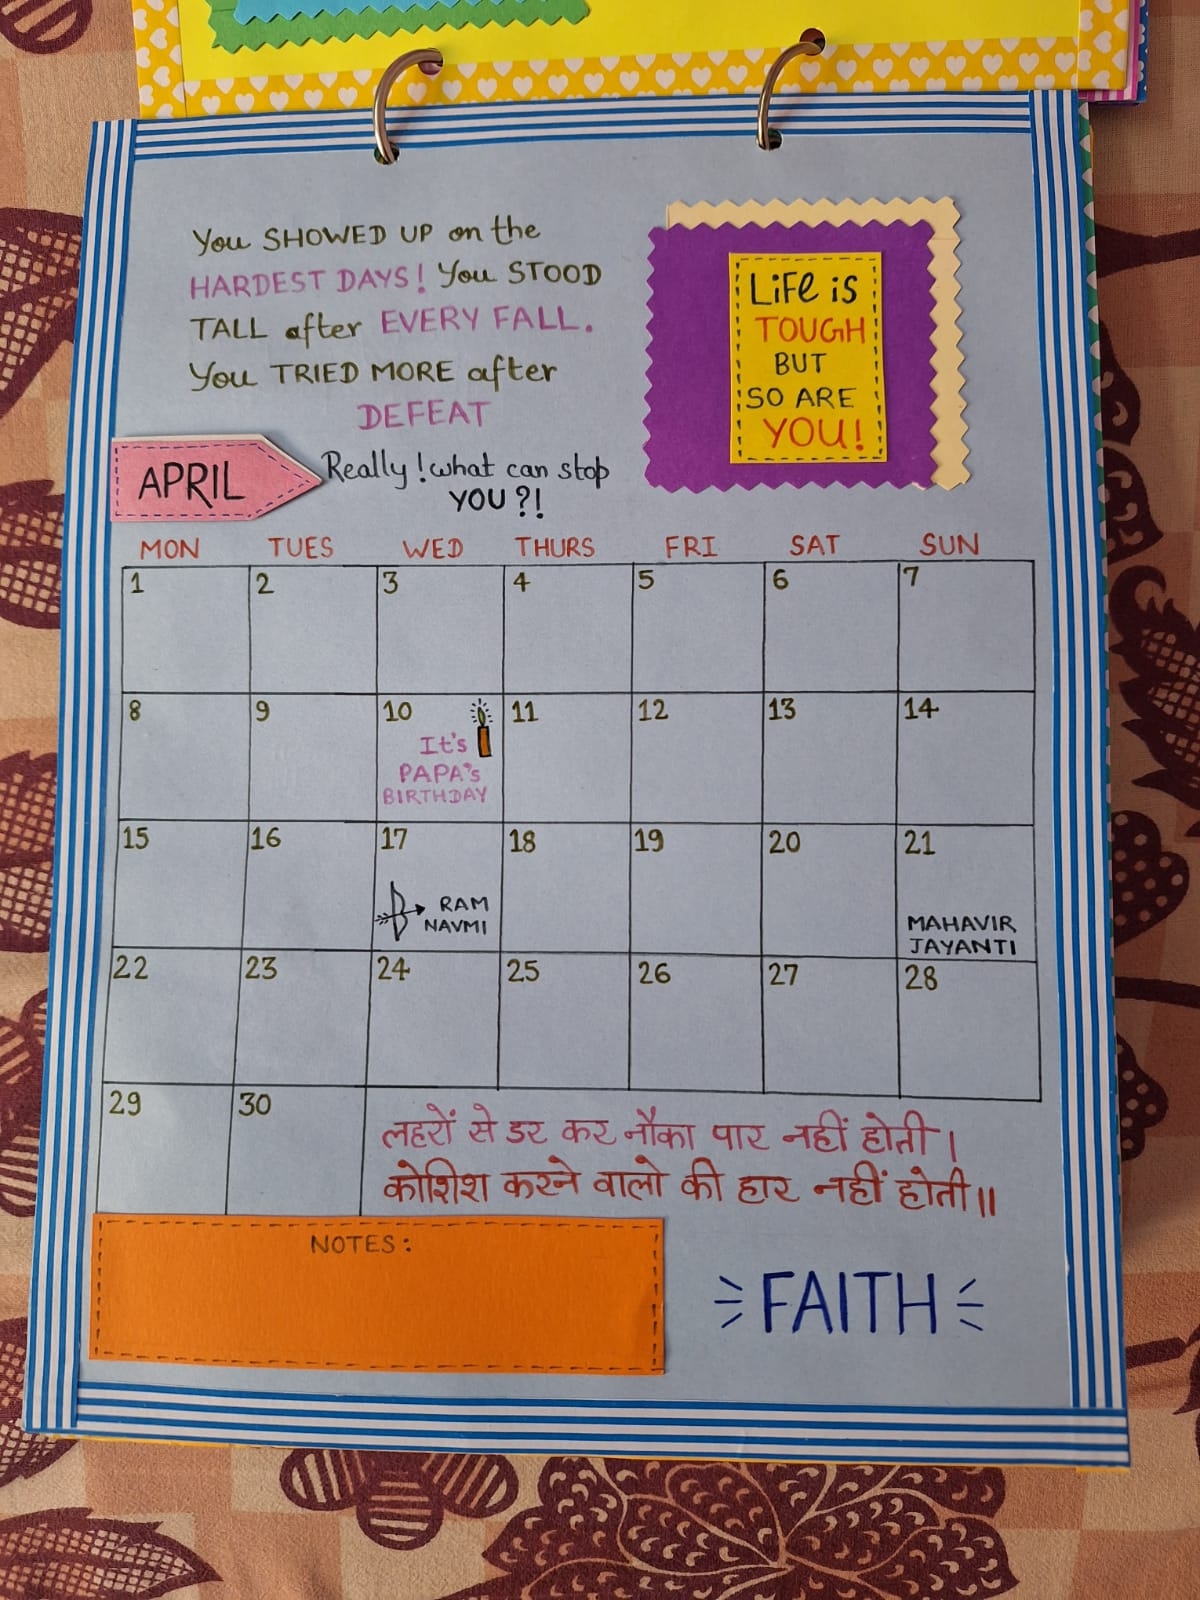 You SHOWED UP on the
HARDEST DAYS! You STOOD
TALL after EVERY FALL.
You TRIED MORE after
DEFEAT
Really! what can stop
YOU?!
LiFe is
TOUGH
BUT
SO ARE
YOU!
APRIL
MON TUES WED THURS FRI SAT SUN
1 2 3 4 5 6 7
8 9 10 11 12 13 14
It's
PAPA's
BIRTHDAY
15 16 17 18 19 20 21
RAM
NAVMI
MAHAVIR
JAYANTI
22 23 24 25 26 27 28
29 30
लहरों से डर कर नौका पार नहीं होती।
कोशिश करने वालो की हार नहीं होती॥
NOTES:
FAITH